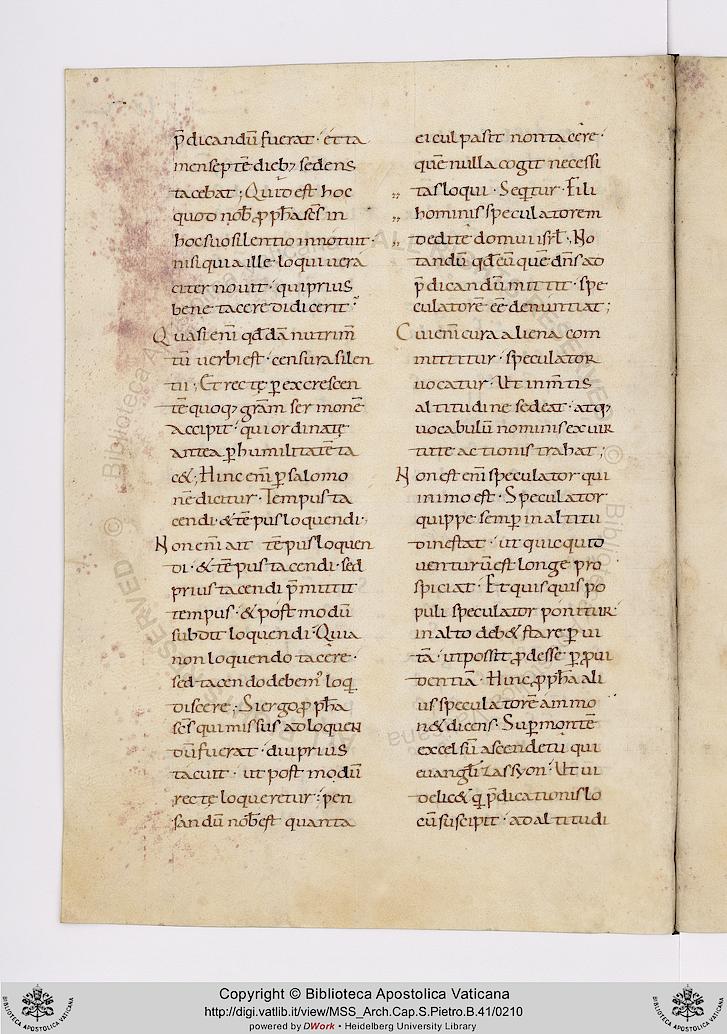 p̄dicandū fuerat · et ta
men septē dieb; sedens
tacebat ; Quid est hoc
quod nob̄ ꝓph̄a sc̄s in
hoc suo silentio innotuit ·
nisi quia ille loqui uera
citer nouit · qui prius
bene tacere didicerit ·
Quasi enī qđdā nutrim̄
tū uerbi est · censura silen
tii ; Et recte ꝑ excrescen
tē quoq; grām sermonē
accipit · qui ordinate
antea ꝑ humilitatē ta
c& ; Hinc enī ꝑ salomo
nē dicitur · Tempus ta
cendi · & tēpus loquendi ·
Non enī ait tēpus loquen
di · & tēpus tacendi · sed
prius tacendi p̄mittit
tempus · & post modū
subdit loquendi · Quia
non loquendo tacere ·
sed tacendo debem' loq̄
discere ; Si ergo ꝓph̄a
sc̄s qui missus ad loquen
dū fuerat · diu prius
tacuit · ut post modū
recte loqueretur · pen
sandū nob̄ est quanta
ei culpa sit non tacere ·
quē nulla cogit necessi
tas loqui · Seqtur · Fili
hominis speculatorem
dedi te domui isrl̄ · No
tandū qđ eū quē dn̄s ad
p̄dicandū mittit · spe
culatorē eē denuntiat ;
Cui enī cura aliena com
mittitur · speculator
uocatur · Ut in m̄tis
altitudine sedeat · atq;
uocabulū nominis ex uir
tute actionis trahat ;
Non est enī speculator qui
in imo est · Speculator
quippe semꝑ in altitu
din estat · ut quicquid
uenturū est longe pro
spiciat · Et quisquis po
puli speculator ponitur
in alto deb& stare ꝑ ui
tā · ut possit ꝓdesse ꝑ ꝓui
dentiā · Hinc ꝓph̄a ali
us speculatorē ammo
n& dicens · Suꝑ montē
excelsū ascende tu qui
euangl̄izas syon · Ut ui
delic& q p̄dicationis lo
cū suscipit · ad altitudi
Copyright © Biblioteca Apostolica Vaticana
http://digi.vatlib.it/view/MSS_Arch.Cap.S.Pietro.B.41/0210
powered by DWork • Heidelberg University Library